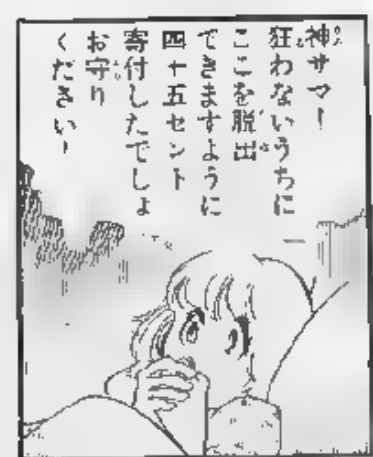 神サマ！
狂わないうちに
ここを脱出
できますように
四十五セント
寄付したでしょ
お守り
ください！